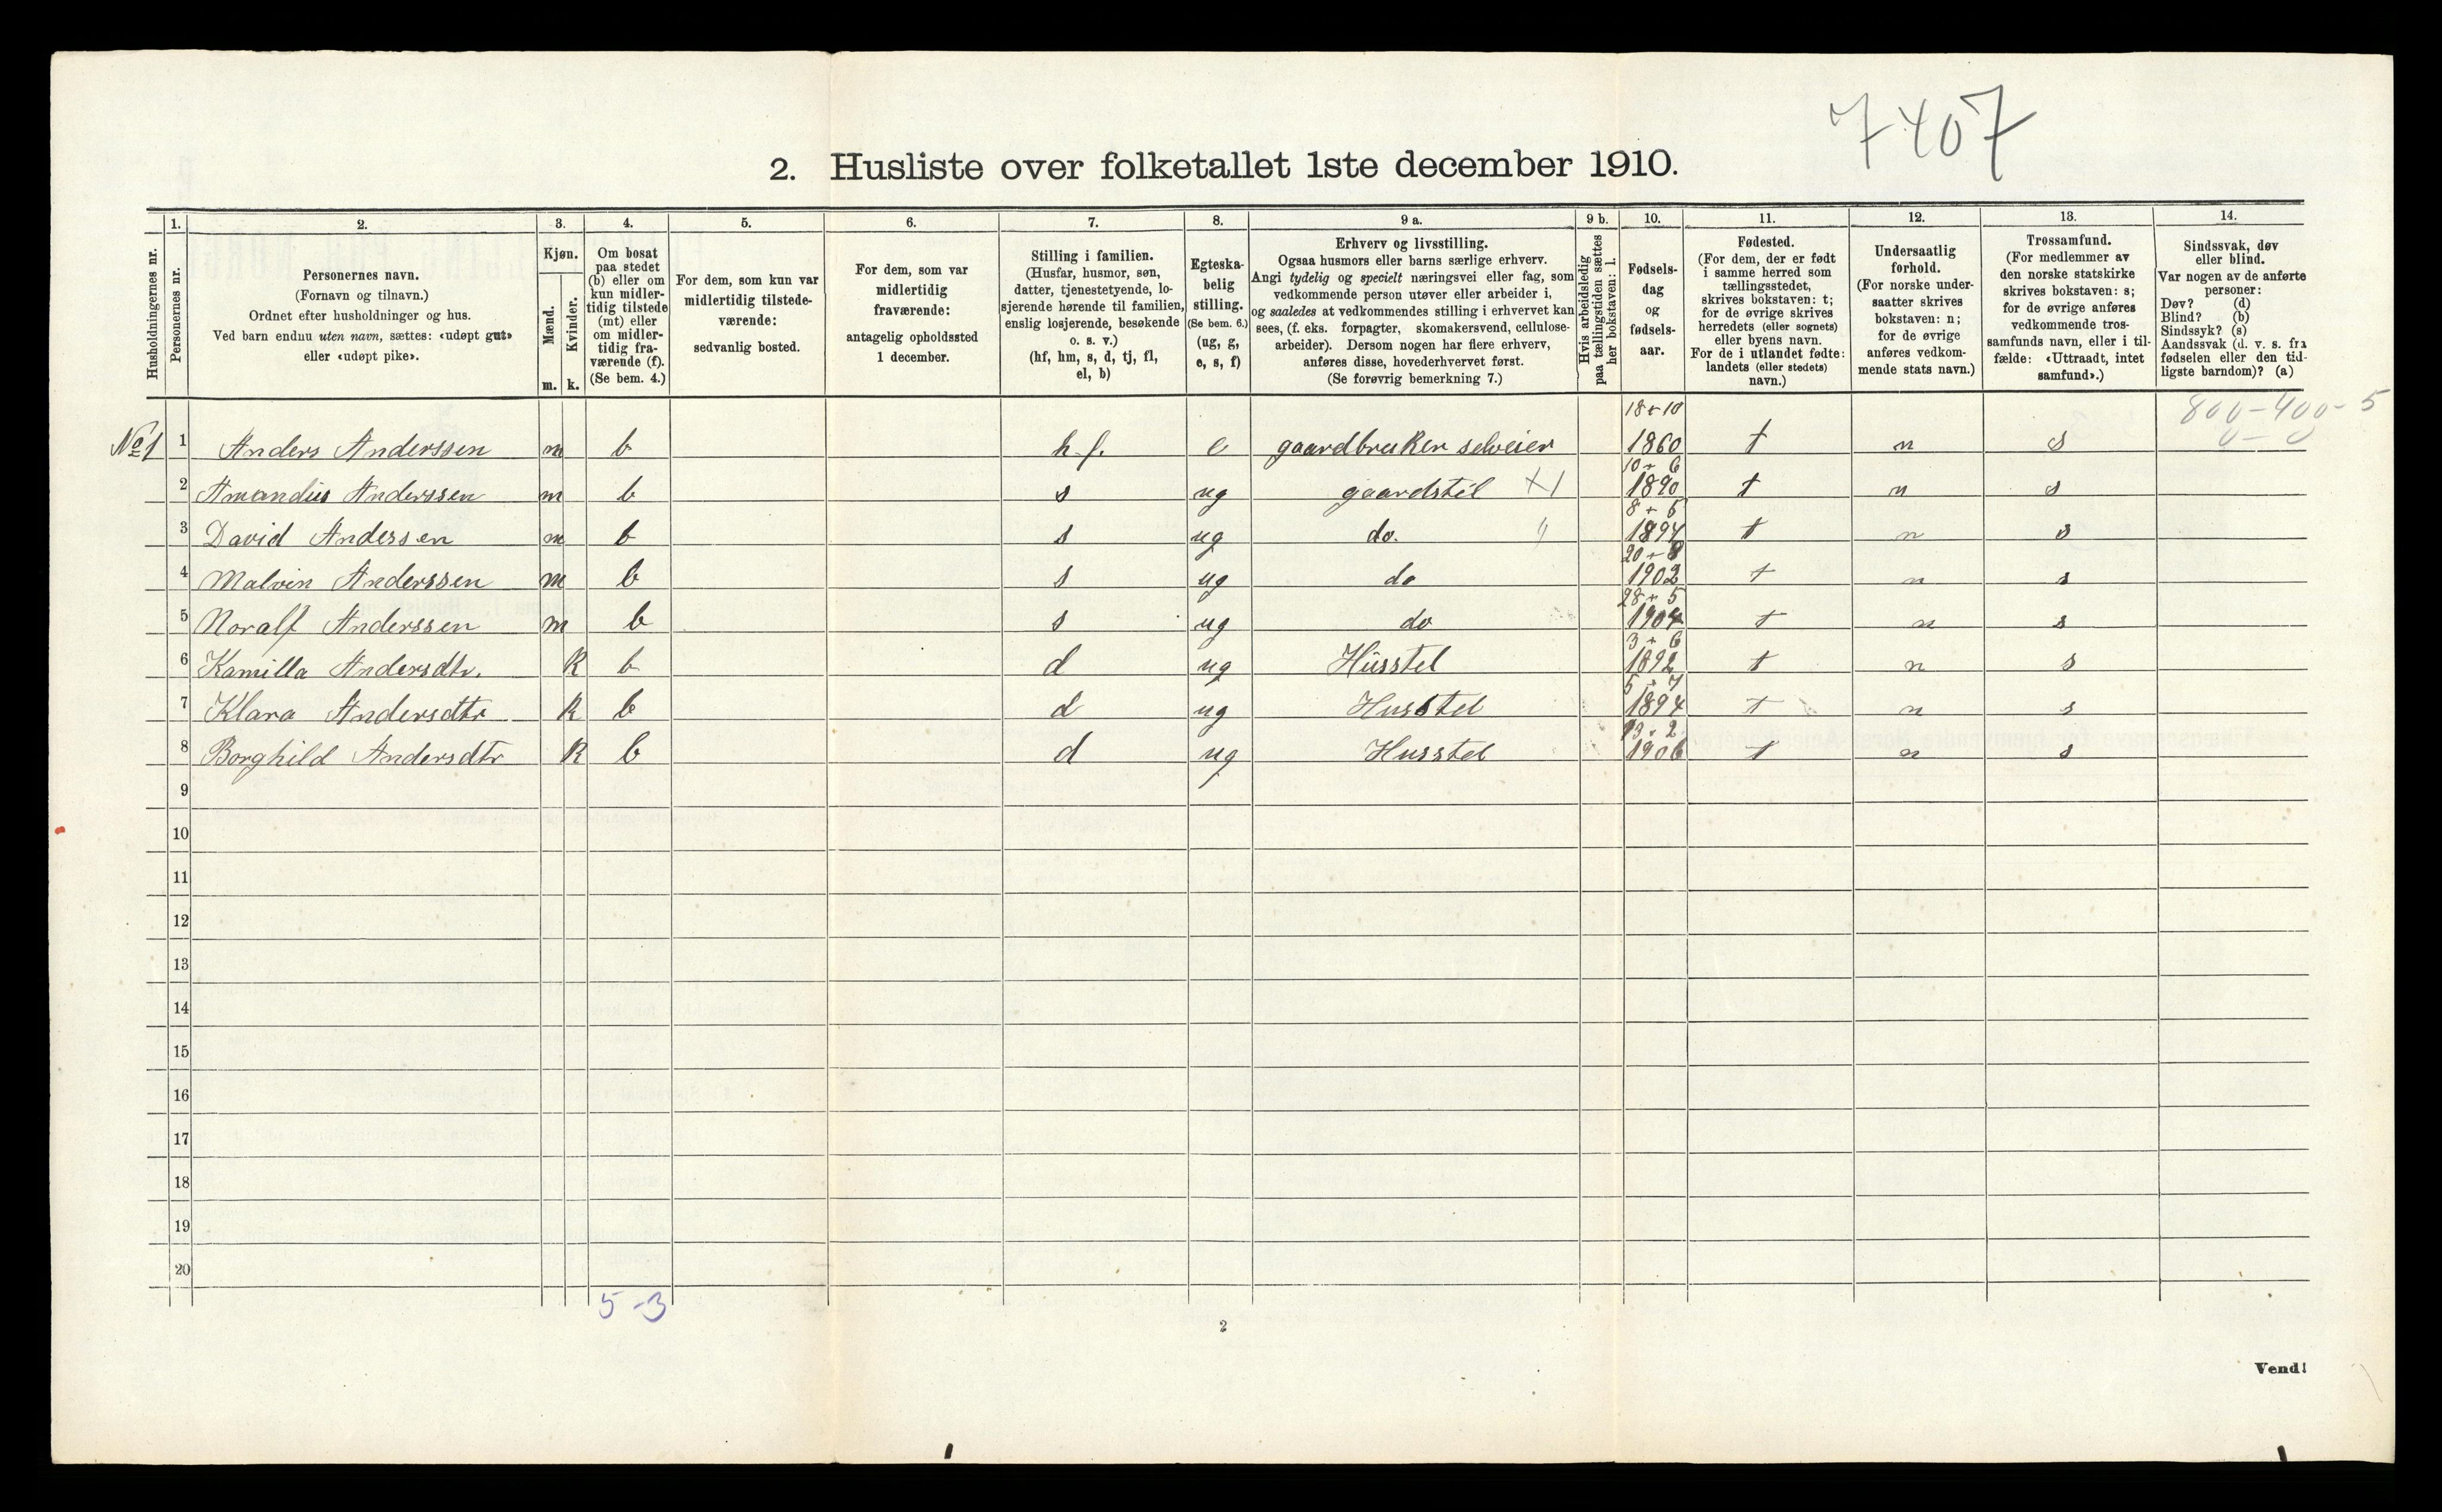 7407
2. Husliste over folketallet 1ste december 1910.
Husholdningernes nr.
1.
Personernes nr.
2.
Personernes navn.
(Fornavn og tilnavn.)
Ordnet efter husholdninger og hus.
Ved barn endnu uten navn, sættes: «udøpt gut»
eller «udøpt pike».
3.
Kjøn.
Mænd.
Kvinder.
m. k.
4.
Om bosat
paa stedet
(b) eller om
kun midler-
tidig tilstede
(mt) eller
om midler-
tidig fra-
værende (f).
(Se bem. 4.)
5.
For dem, som kun var
midlertidig tilstede-
værende:
sedvanlig bosted.
6.
For dem, som var
midlertidig
fraværende:
antagelig opholdssted
1 december.
7.
Stilling i familien.
(Husfar, husmor, søn,
datter, tjenestetyende, lo-
sjerende hørende til familien,
enslig losjerende, besøkende
o. s. v.)
(hf, hm, s, d, tj, fl,
el, b)
8.
Egteska-
belig
stilling.
(Se bem. 6.)
(ug, g,
e, s, f)
9 a.
Erhverv og livsstilling.
Ogsaa husmors eller barns særlige erhverv.
Angi tydelig og specielt næringsvei eller fag, som
vedkommende person utøver eller arbeider i,
og saaledes at vedkommendes stilling i erhvervet kan
sees, (f. eks. forpagter, skomakersvend, cellulose-
arbeider). Dersom nogen har flere erhverv,
anføres disse, hovederhvervet først.
(Se forøvrig bemerkning 7.)
9 b.
Hvis arbeidsledig
paa tællingstiden sættes
her bokstaven: l.
10.
Fødsels-
dag
og
fødsels-
aar.
11.
Fødested.
(For dem, der er født
i samme herred som
tællingsstedet,
skrives bokstaven: t;
for de øvrige skrives
herredets (eller sognets)
eller byens navn.
For de i utlandet fødte:
landets (eller stedets)
navn.)
12.
Undersaatlig
forhold.
(For norske under-
saatter skrives
bokstaven: n;
for de øvrige
anføres vedkom-
mende stats navn.)
13.
Trossamfund.
(For medlemmer av
den norske statskirke
skrives bokstaven: s;
for de øvrige anføres
vedkommende tros-
samfunds navn, eller i til-
fælde: «Uttraadt, intet
samfund».)
14.
Sindssvak, døv
eller blind.
Var nogen av de anførte
personer:
Døv? (d)
Blind? (b)
Sindssyk? (s)
Aandssvak (d. v. s. fra
fødselen eller den tid-
ligste barndom)? (a)
800-400-5
0-0
No 1 1 Anders Anderssen m b h.f. e gaardbruker selveier 18+10 1860 t n s
2 Amandus Anderssen m b s ug gaardstel X1 10+6 1890 t n s
3 David Anderssen m b s ug do. " 8+5 1894 t n s
4 Malvin Anderssen m b s ug do 20+8 1902 t n s
5 Noralf Anderssen m b s ug do 28+5 1904 t n s
6 Kamilla Andersdtr. k b d ug Husstel 3+6 1892 t n s
7 Klara Andersdtr k b d ug Husstel 5+7 1894 t n s
8 Borghild Andersdtr k b d ug Husstel 13+2 1906 t n s
9
10
11
12
13
14
15
16
17
18
19
20
5-3
2
Vend!